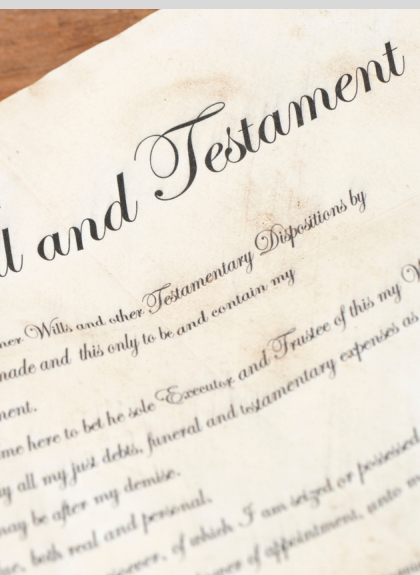 ll and Testament
ner Wills and other Testamentary Dispositions by
made and this only to be and contain my
ment.
me here to bet he sole Executor and Trustee of this my W
y all my just debts, funeral and testamentary expenses as
may be after my demise.
se, both real and personal,
soever, of which I am seized or possessed
er of appointment, unto